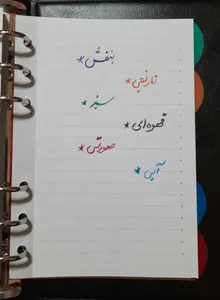 * بنفش
* نارنجی
* سبز
* قهوه‌ای
* صورتی
* آبی